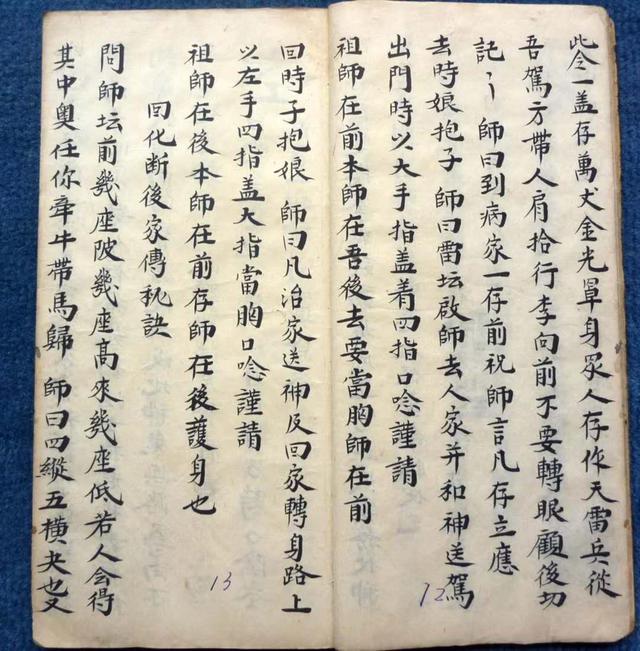 此令一盖存萬丈金光罩身眾人存作天雷兵從
吾駕方帶人肩拾行李向前不要轉眼顧後切
記〻師曰到病家一存前祝師言凡存立應
去時娘抱子 師曰雷坛啟師去人家并和神送駕
出門時以大手指盖着四指口唸謹請
祖師在前本師在吾後去要當胸師在前
12
回時子抱娘 師曰凡治家送神反回家轉身路上
以左手四指盖大指當胸口唸謹請
祖師在後本師在前存師在後護身也
回化断後家傳秘訣
問師坛前幾座陂幾座高來幾座低若人會得
其中奥任你牵牛帶馬歸 師曰四縱五橫夬也又
13